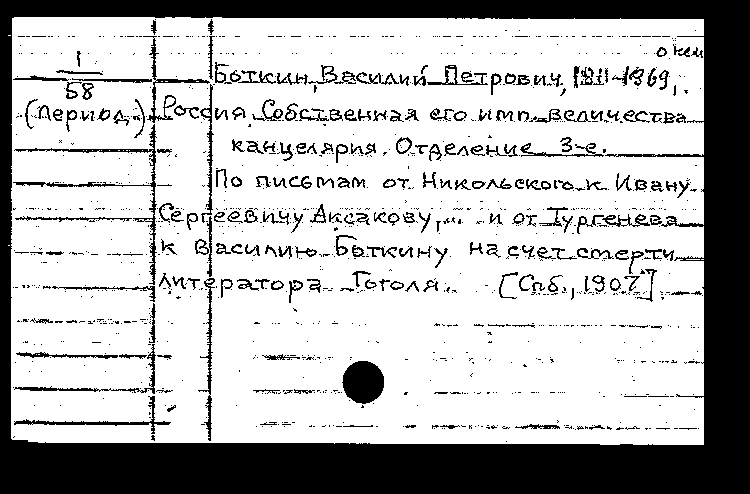 о нем
1
58
(период.)
Боткин, Василий Петрович, 1811-1869,.
Россия. Собственная его имп. величества
канцелярия. Отделение 3-е.
По письмам от Никольского к Ивану
Сергеевичу Аксакову,... и от Тургенева
к Василию Боткину на счет смерти
литератора Гоголя. [Спб., 1907].